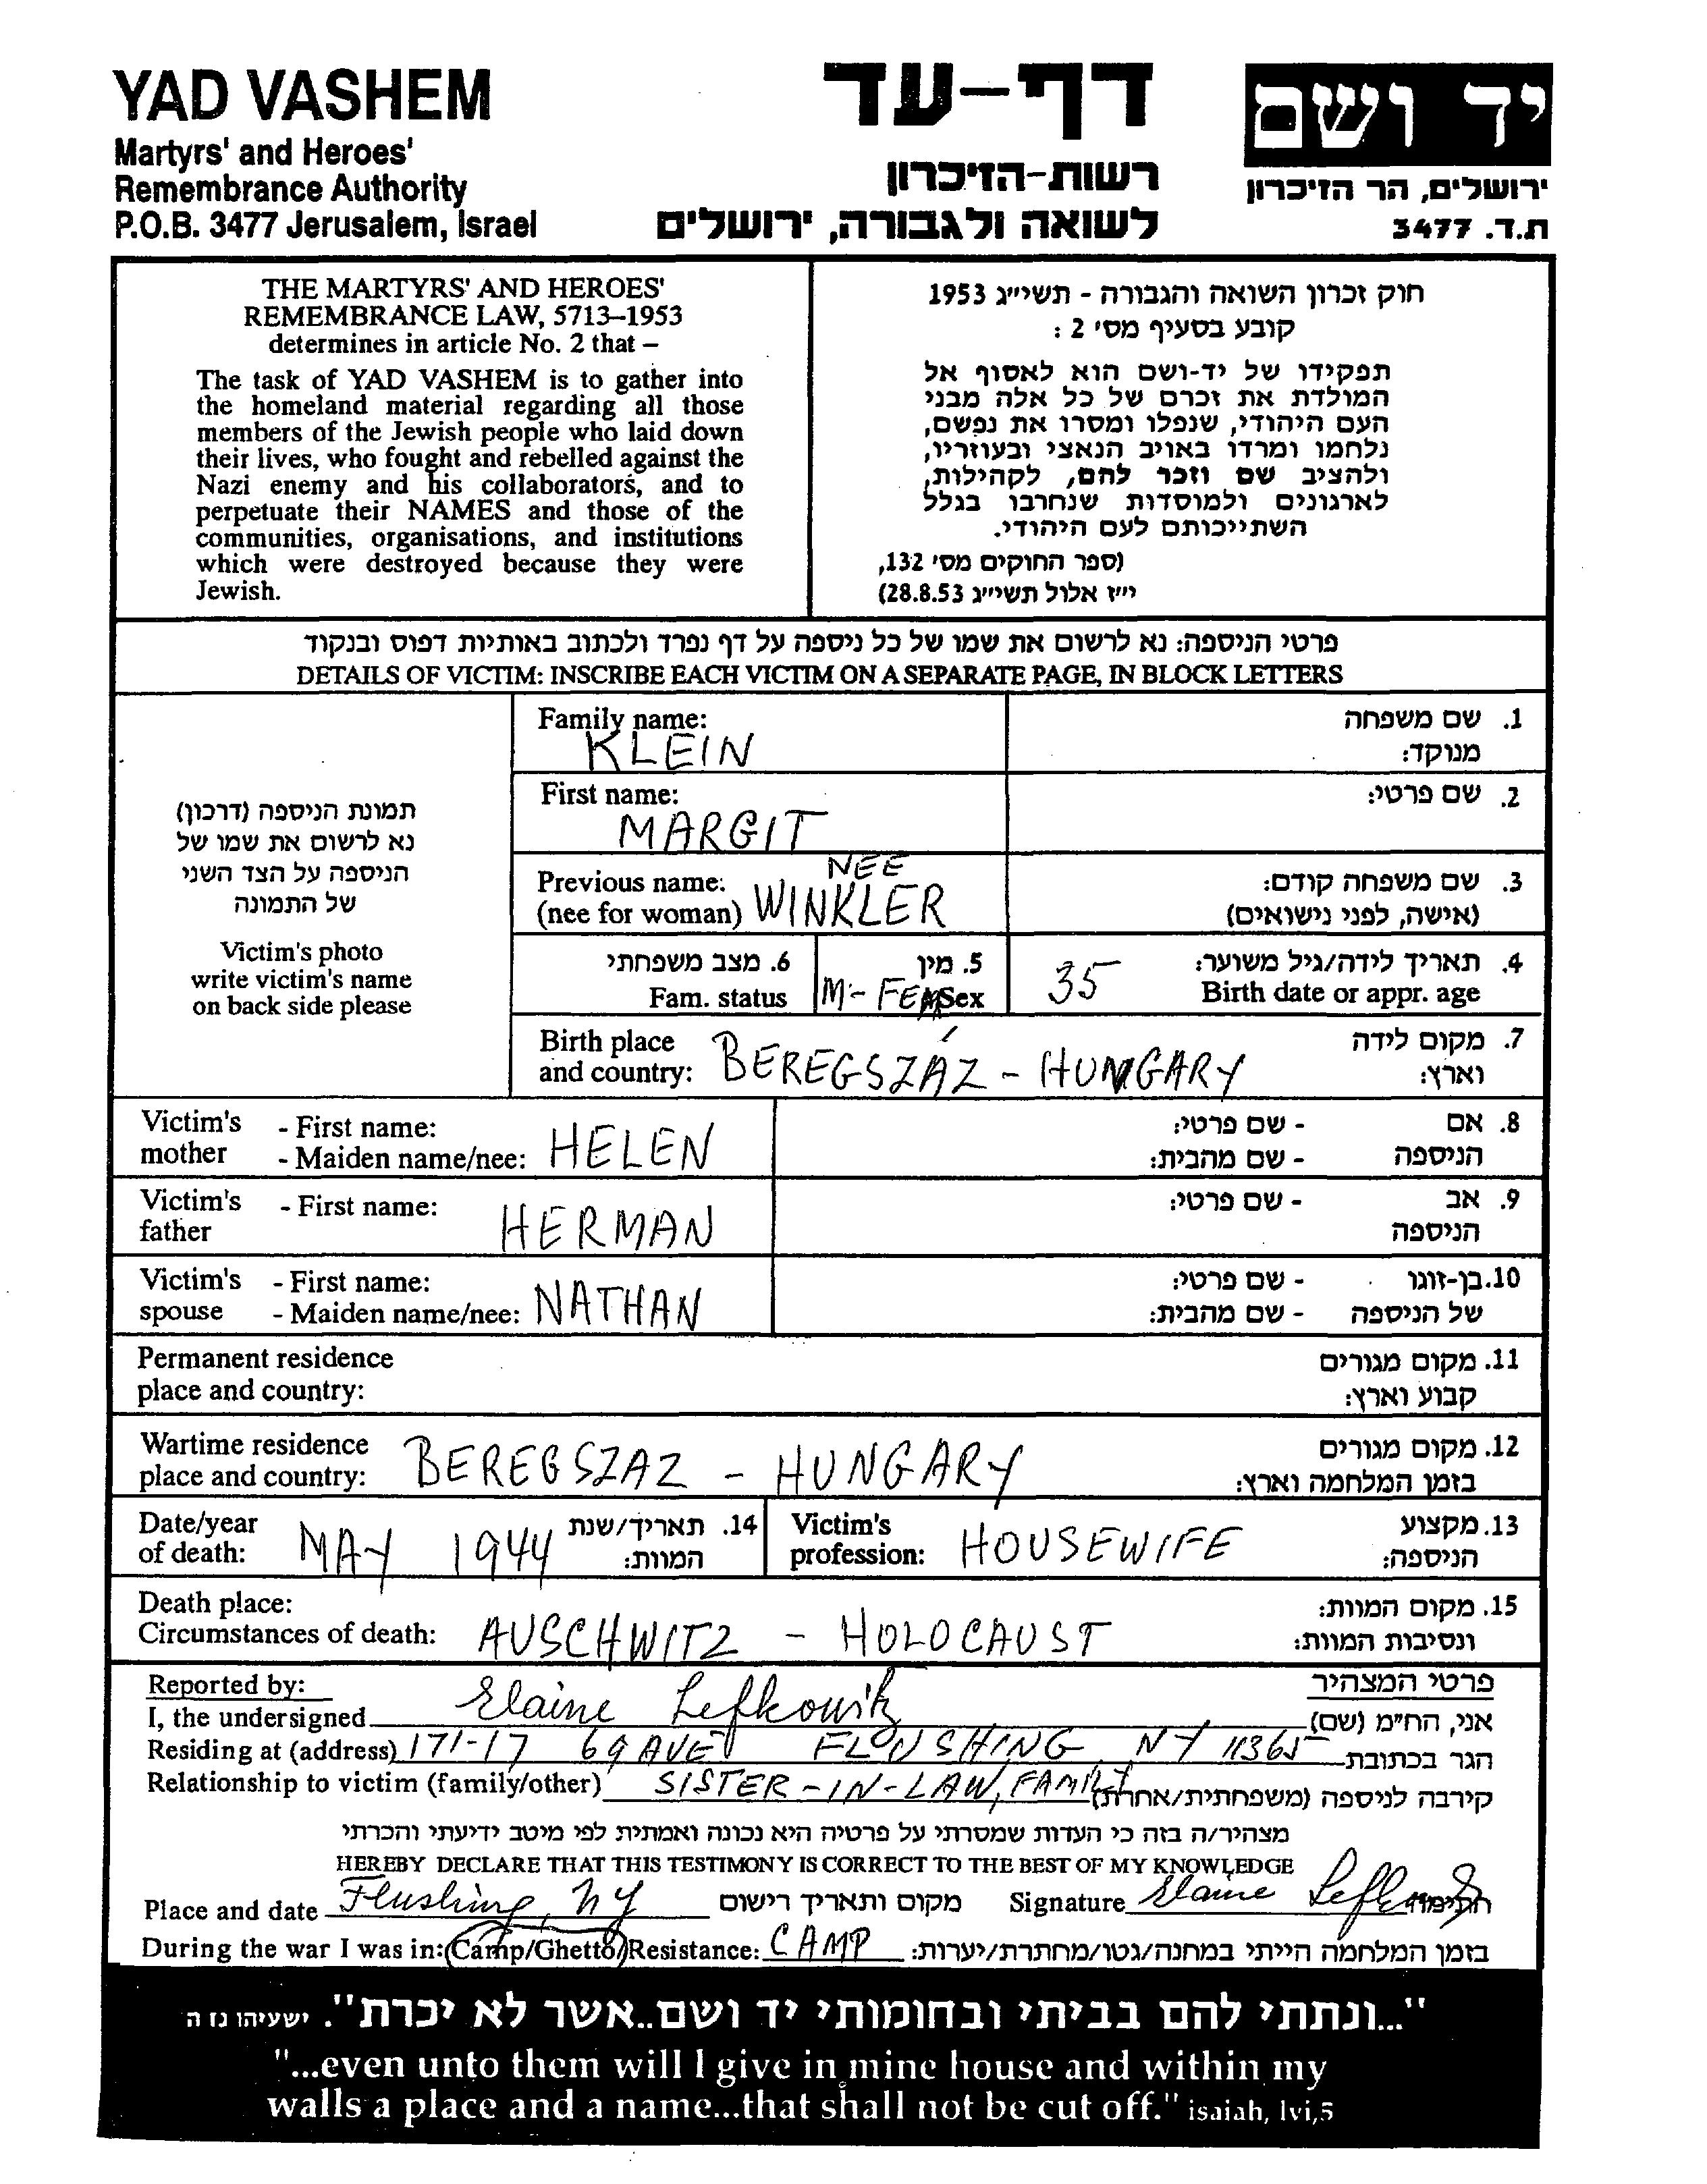 YAD VASHEM
Martyrs' and Heroes'
Remembrance Authority
P.O.B. 3477 Jerusalem, Israel
דף-עד
רשות-הזיכרון
לשואה ולגבורה, ירושלים
יד ושם
ירושלים, הר הזיכרון
ת.ד. 3477
THE MARTYRS' AND HEROES'
REMEMBRANCE LAW, 5713–1953
determines in article No. 2 that –
The task of YAD VASHEM is to gather into
the homeland material regarding all those
members of the Jewish people who laid down
their lives, who fought and rebelled against the
Nazi enemy and his collaborators, and to
perpetuate their NAMES and those of the
communities, organisations, and institutions
which were destroyed because they were
Jewish.
חוק זכרון השואה והגבורה - תשי״ג 1953
קובע בסעיף מס׳ 2 :
תפקידו של יד-ושם הוא לאסוף אל
המולדת את זכרם של כל אלה מבני
העם היהודי, שנפלו ומסרו את נפשם,
נלחמו ומרדו באויב הנאצי ובעוזריו,
ולהציב שם וזכר להם, לקהילות,
לארגונים ולמוסדות שנחרבו בגלל
השתייכותם לעם היהודי.
(ספר החוקים מס׳ 132,
י״ז אלול תשי״ג 28.8.53)
פרטי הניספה: נא לרשום את שמו של כל ניספה על דף נפרד ולכתוב באותיות דפוס ובנקוד
DETAILS OF VICTIM: INSCRIBE EACH VICTIM ON A SEPARATE PAGE, IN BLOCK LETTERS
תמונת הניספה (דרכון)
נא לרשום את שמו של
הניספה על הצד השני
של התמונה
Victim's photo
write victim's name
on back side please
Family name: 1. שם משפחה
KLEIN מנוקד:
First name: 2. שם פרטי:
MARGIT
NEE
Previous name: 3. שם משפחה קודם:
(nee for woman) WINKLER (אישה, לפני נישואים)
6. מצב משפחתי 5. מין 4. תאריך לידה/גיל משוער:
Fam. status M-FEM Sex 35 Birth date or appr. age
Birth place 7. מקום לידה
and country: BEREGSZÁZ - HUNGARY וארץ:
Victim's - First name: - שם פרטי: 8. אם
mother - Maiden name/nee: HELEN - שם מהבית: הניספה
Victim's - First name: - שם פרטי: 9. אב
father HERMAN הניספה
Victim's - First name: - שם פרטי: 10. בן-זוגו
spouse - Maiden name/nee: NATHAN - שם מהבית: של הניספה
Permanent residence 11. מקום מגורים
place and country: קבוע וארץ:
Wartime residence 12. מקום מגורים
place and country: BEREGSZAZ - HUNGARY בזמן המלחמה וארץ:
Date/year 14. תאריך/שנת Victim's 13. מקצוע
of death: MAY 1944 המוות: profession: HOUSEWIFE הניספה:
Death place: 15. מקום המוות:
Circumstances of death: AUSCHWITZ - HOLOCAUST ונסיבות המוות:
Reported by: פרטי המצהיר
I, the undersigned Elaine Lefkowitz אני, הח״מ (שם)
Residing at (address) 171-17 69 AVE FLUSHING NY 11365 הגר בכתובת
Relationship to victim (family/other) SISTER-IN-LAW, FAMILY קירבה לניספה (משפחתית/אחרת)
מצהיר/ה בזה כי העדות שמסרתי על פרטיה היא נכונה ואמתית לפי מיטב ידיעתי והכרתי
HEREBY DECLARE THAT THIS TESTIMONY IS CORRECT TO THE BEST OF MY KNOWLEDGE
Place and date Flushing, NY מקום ותאריך רישום Signature Elaine Lefkowitz
During the war I was in: Camp/Ghetto/Resistance: CAMP בזמן המלחמה הייתי במחנה/גטו/מחתרת/יערות:
"...ונתתי להם בביתי ובחומותי יד ושם..אשר לא יכרת". ישעיהו נז ה
"...even unto them will I give in mine house and within my
walls a place and a name...that shall not be cut off." isaiah, lvi,5